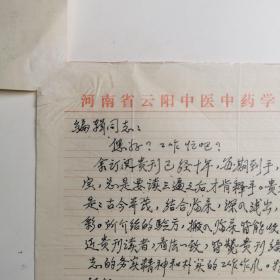 河南省云阳中医中药学
编辑同志:
您好?工作忙吧?
余订阅贵刊已经十年,每期到手,
总是要读三遍之后才肯释手。贵
是古今并茂,结合临床,深入浅出,
影。所介绍的验方,搬入临床皆能
近贵刊读者,看法一致,皆赞贵刊编
志的务实精神和朴实的工作作风,